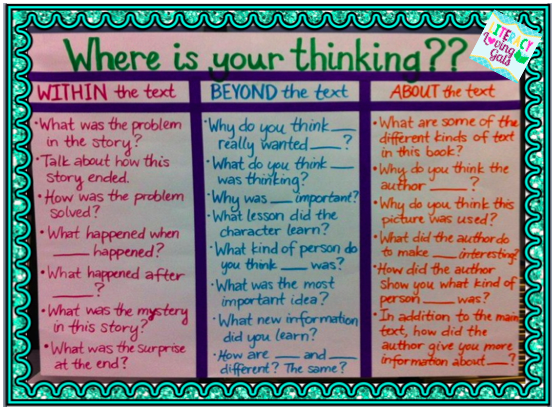 Where is your thinking??
LITERACY
Loving
Gals
WITHIN the text
• What was the problem
in the story?
• Talk about how this
story ended.
• How was the problem
solved?
• What happened when
____ happened?
• What happened after
____?
• What was the mystery
in this story?
• What was the surprise
at the end?
BEYOND the text
• Why do you think ____
really wanted ____?
• What do you think ____
was thinking?
• Why was ____ important?
• What lesson did the
character learn?
• What kind of person do
you think ____ was?
• What was the most
important idea?
• What new information
did you learn?
• How are ____ and ____
different? The same?
ABOUT the text
• What are some of the
different kinds of text
in this book?
• Why do you think the
author ____?
• Why do you think this
picture was used?
• What did the author do
to make ____ interesting?
• How did the author
show you what kind of
person ____ was?
• In addition to the main
text, how did the
author give you more
information about ____?